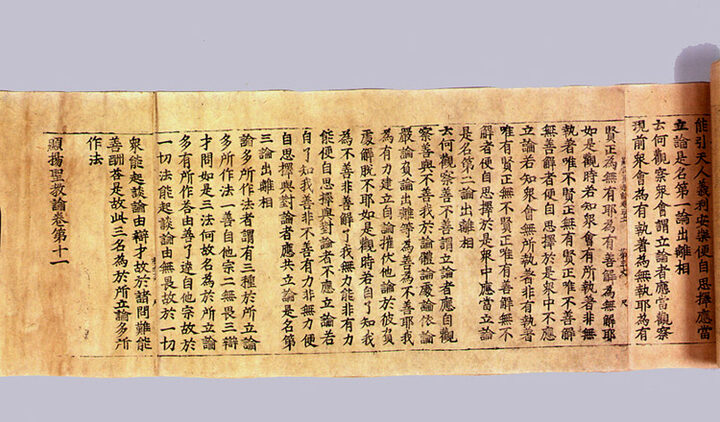 能引天人義利安樂便自思擇應當
立論是名第一論出離相
云何觀察衆會謂立論者應當觀察
現前衆會為有執者為無執耶為有
賢正為無有耶為有善解為無解耶
如是觀時若知衆會有所執者非無
執者唯不賢正無有賢正唯不善解
無善解者便自思擇於是衆中不應
立論若知衆會無所執者非有執者
唯有賢正無不賢正唯有善解無不
解者便自思擇於是衆中應當立論
是名第二論出離相
云何觀察善不善謂立論者應自觀
察善與不善我於論體論處論依論
嚴論負論出離等為善為不善耶我
為有力建立自論摧伏他論於彼負
處解脫不耶如是觀時若自了知我
為不善非善解了我無力能非有力
能便自思擇與對論者不應立論若
自了知我善非不善有力非無力便
自思擇與對論者應共立論是名第
三論出離相
論多所作法者謂有三種於所立論
多所作法一善自他宗二無畏三辯
才問如是三法何故名為於所立論
多有所作荅由善了達自他宗故於
一切法能起談論由無畏故於一切
衆能起談論由辯才故於諸問難能
善酬荅是故此三名為於所立論多所
作法
顯揚聖教論卷第十一